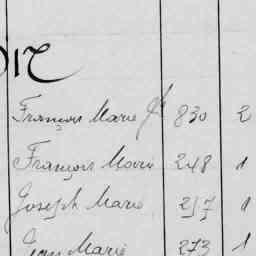 François Marie 830 2
François Marie 248 1
Joseph Marie 217 1
Jean Marie 273 1